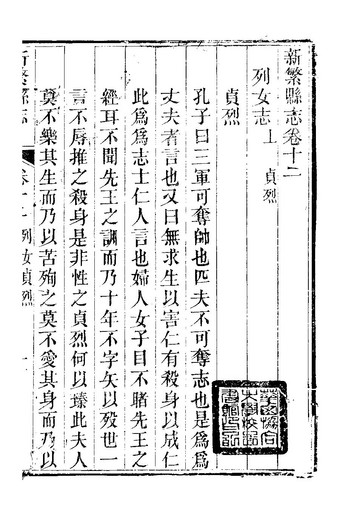 新繁縣志卷十二
列女志上　貞烈
貞烈
孔子曰三軍可奪帥也匹夫不可奪志也是爲爲
丈夫者言也又曰無求生以害仁有殺身以成仁
此爲爲志士仁人言也婦人女子目不睹先王之
經耳不聞先王之訓而乃十年不字矢以歿世一
言不辱推之殺身是非性之貞烈何以臻此夫人
莫不樂其生而乃以苦殉之莫不愛其身而乃以
新繁縣志
卷十二　列女貞烈
一